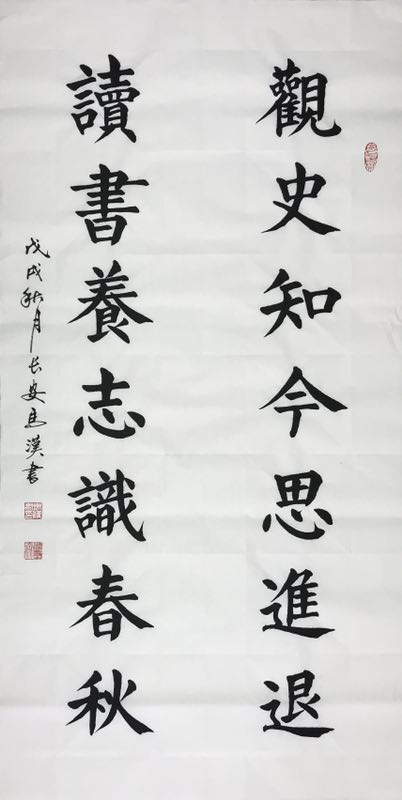 觀史知今思進退
讀書養志識春秋
戊戌秋月長安馬漢書